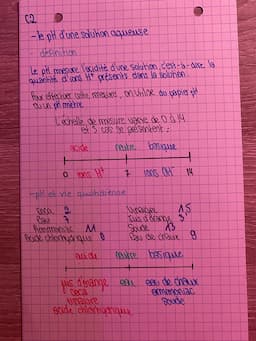 C2
- le pH d'une solution aqueuse
- définition
Le pH mesure l'acidité d'une solution, c'est-à-dire la
quantité d'ions H+ présents dans la solution
Pour effectuer cette mesure, on utilise du papier pH
ou un pH mètre
L'échelle de mesure varie de 0 à 14
et 3 cas se présentent :
acide neutre basique
0 ions H+ 7 ions OH- 14
- pH et vie quotidienne
Coca 2 Vinaigre 1,5
Eau 7 Jus d'orange 3
Ammoniac 11 Soude 13
Acide chlorhydrique 0 Eau de chaux 9
acide neutre basique
jus d'orange eau eau de chaux
coca ammoniac
vinaigre soude
acide chlorhydrique